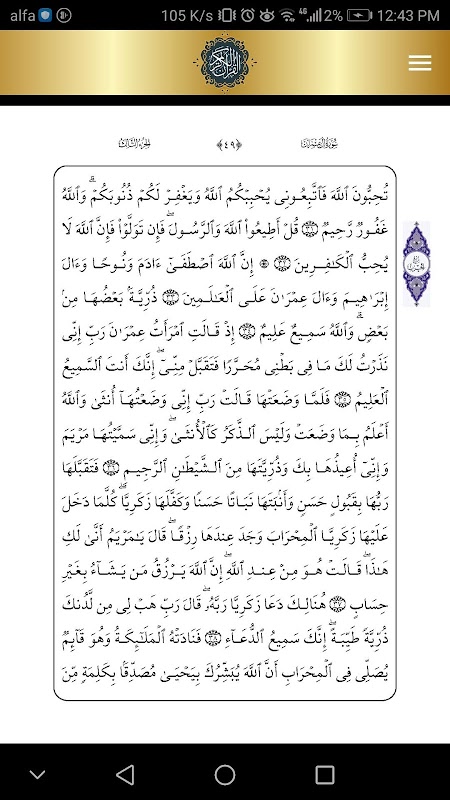 alfa 105 K/s 4G 2% 12:43 PM
القرآن الكريم
سورة آل عمران ﴿٤٩﴾ الجزء الثالث
تُحِبُّونَ ٱللَّهَ فَٱتَّبِعُونِى يُحْبِبْكُمُ ٱللَّهُ وَيَغْفِرْ لَكُمْ ذُنُوبَكُمْ ۗ وَٱللَّهُ
غَفُورٌ رَّحِيمٌ ﴿٣١﴾ قُلْ أَطِيعُوا۟ ٱللَّهَ وَٱلرَّسُولَ ۖ فَإِن تَوَلَّوْا۟ فَإِنَّ ٱللَّهَ لَا
يُحِبُّ ٱلْكَـٰفِرِينَ ﴿٣٢﴾ ۞ إِنَّ ٱللَّهَ ٱصْطَفَىٰٓ ءَادَمَ وَنُوحًا وَءَالَ
إِبْرَٰهِيمَ وَءَالَ عِمْرَٰنَ عَلَى ٱلْعَـٰلَمِينَ ﴿٣٣﴾ ذُرِّيَّةًۢ بَعْضُهَا مِنۢ
بَعْضٍ ۗ وَٱللَّهُ سَمِيعٌ عَلِيمٌ ﴿٣٤﴾ إِذْ قَالَتِ ٱمْرَأَتُ عِمْرَٰنَ رَبِّ إِنِّى
نَذَرْتُ لَكَ مَا فِى بَطْنِى مُحَرَّرًا فَتَقَبَّلْ مِنِّىٓ ۖ إِنَّكَ أَنتَ ٱلسَّمِيعُ
ٱلْعَلِيمُ ﴿٣٥﴾ فَلَمَّا وَضَعَتْهَا قَالَتْ رَبِّ إِنِّى وَضَعْتُهَآ أُنثَىٰ وَٱللَّهُ
أَعْلَمُ بِمَا وَضَعَتْ وَلَيْسَ ٱلذَّكَرُ كَٱلْأُنثَىٰ ۖ وَإِنِّى سَمَّيْتُهَا مَرْيَمَ
وَإِنِّىٓ أُعِيذُهَا بِكَ وَذُرِّيَّتَهَا مِنَ ٱلشَّيْطَـٰنِ ٱلرَّجِيمِ ﴿٣٦﴾ فَتَقَبَّلَهَا
رَبُّهَا بِقَبُولٍ حَسَنٍ وَأَنۢبَتَهَا نَبَاتًا حَسَنًا وَكَفَّلَهَا زَكَرِيَّا ۖ كُلَّمَا دَخَلَ
عَلَيْهَا زَكَرِيَّا ٱلْمِحْرَابَ وَجَدَ عِندَهَا رِزْقًا ۖ قَالَ يَـٰمَرْيَمُ أَنَّىٰ لَكِ
هَـٰذَا ۖ قَالَتْ هُوَ مِنْ عِندِ ٱللَّهِ ۖ إِنَّ ٱللَّهَ يَرْزُقُ مَن يَشَآءُ بِغَيْرِ
حِسَابٍ ﴿٣٧﴾ هُنَالِكَ دَعَا زَكَرِيَّا رَبَّهُۥ ۖ قَالَ رَبِّ هَبْ لِى مِن لَّدُنكَ
ذُرِّيَّةً طَيِّبَةً ۖ إِنَّكَ سَمِيعُ ٱلدُّعَآءِ ﴿٣٨﴾ فَنَادَتْهُ ٱلْمَلَـٰٓئِكَةُ وَهُوَ قَآئِمٌ
يُصَلِّى فِى ٱلْمِحْرَابِ أَنَّ ٱللَّهَ يُبَشِّرُكَ بِيَحْيَىٰ مُصَدِّقًۢا بِكَلِمَةٍ مِّنَ